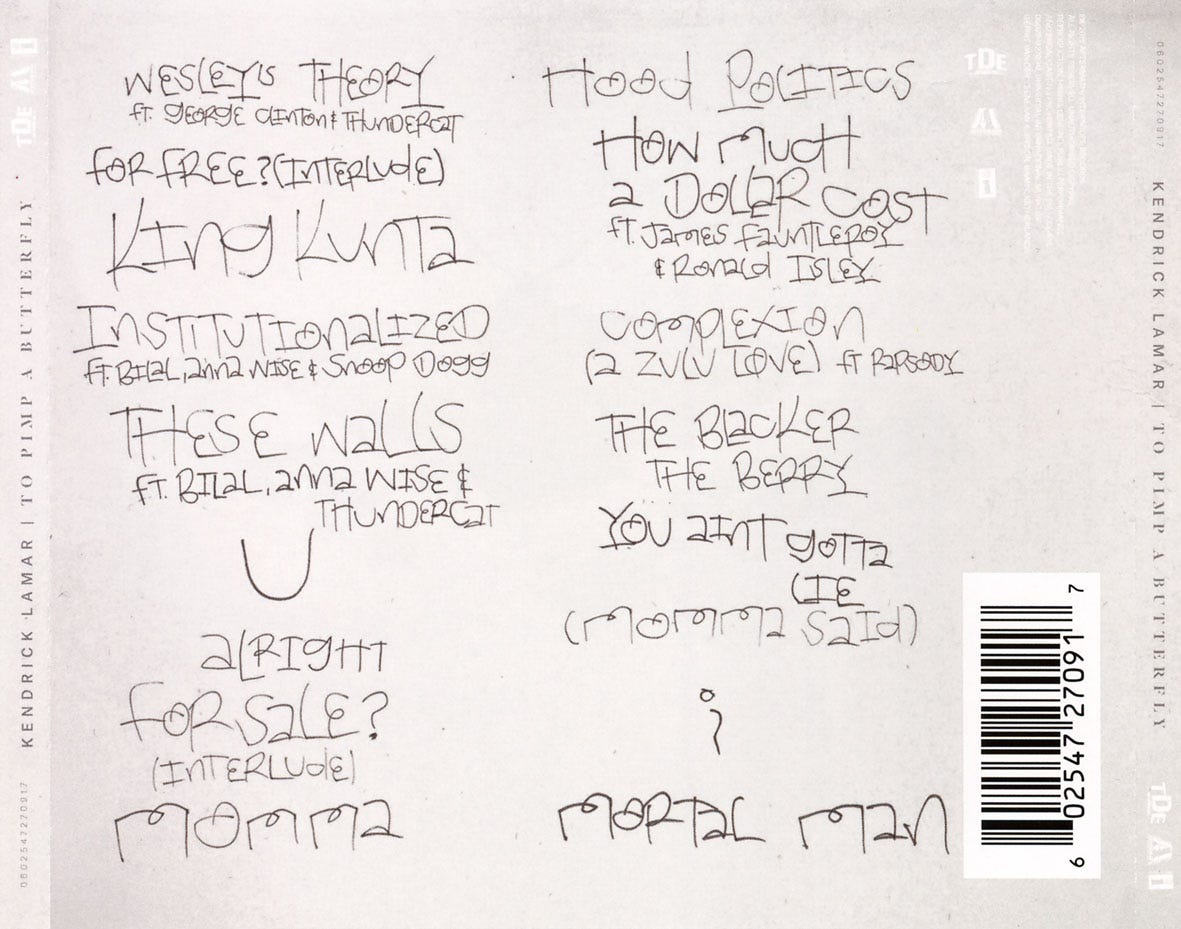 WESLEY'S THEORY
ft. GEORGE CLINTON & THUNDERCAT
FOR FREE? (INTERLUDE)
KING KUNTA
INSTITUTIONALIZED
ft. BILAL, ANNA WISE & SNOOP DOGG
THESE WALLS
ft. BILAL, ANNA WISE &
THUNDERCAT
U
ALRIGHT
FOR SALE?
(INTERLUDE)
MOMMA
HOOD POLITICS
HOW MUCH
A DOLLAR COST
ft. JAMES FAUNTLEROY
& RONALD ISLEY
COMPLEXION
(A ZULU LOVE) ft RAPSODY
THE BLACKER
THE BERRY
YOU AINT GOTTA
LIE
(MOMMA SAID)
i
MORTAL MAN
KENDRICK LAMAR | TO PIMP A BUTTERFLY
0602547270917
TDE
KENDRICK LAMAR | TO PIMP A BUTTERFLY
0602547270917
TDE
TDE
6 02547 27091 7